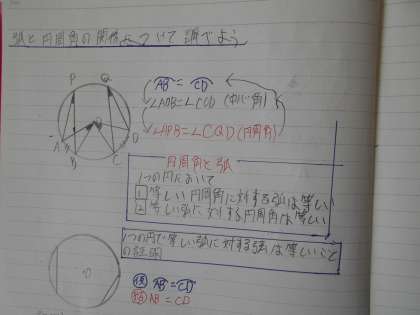 弧と円周角の関係について調べよう
P Q
⌒AB = ⌒CD
∠AOB=∠COD (中心角)
O
A B C D
∠APB=∠CQD (円周角)
円周角と弧
1つの円において
1 等しい円周角に対する弧は等しい
2 等しい弧に対する円周角は等しい
1つの円で等しい弧に対する弦は等しいこと
の証明
O
仮 ⌒AB = ⌒CD
結 AB = CD